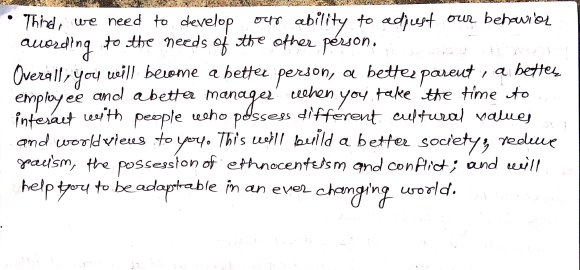 • Third, we need to develop our ability to adjust our behavior
according to the needs of the other person.
Overall, you will become a better person, a better parent, a better
employee and a better manager when you take the time to
interact with people who possess different cultural values
and worldviews to you. This will build a better society, reduce
racism, the possession of ethnocentrism and conflict; and will
help you to be adaptable in an ever changing world.